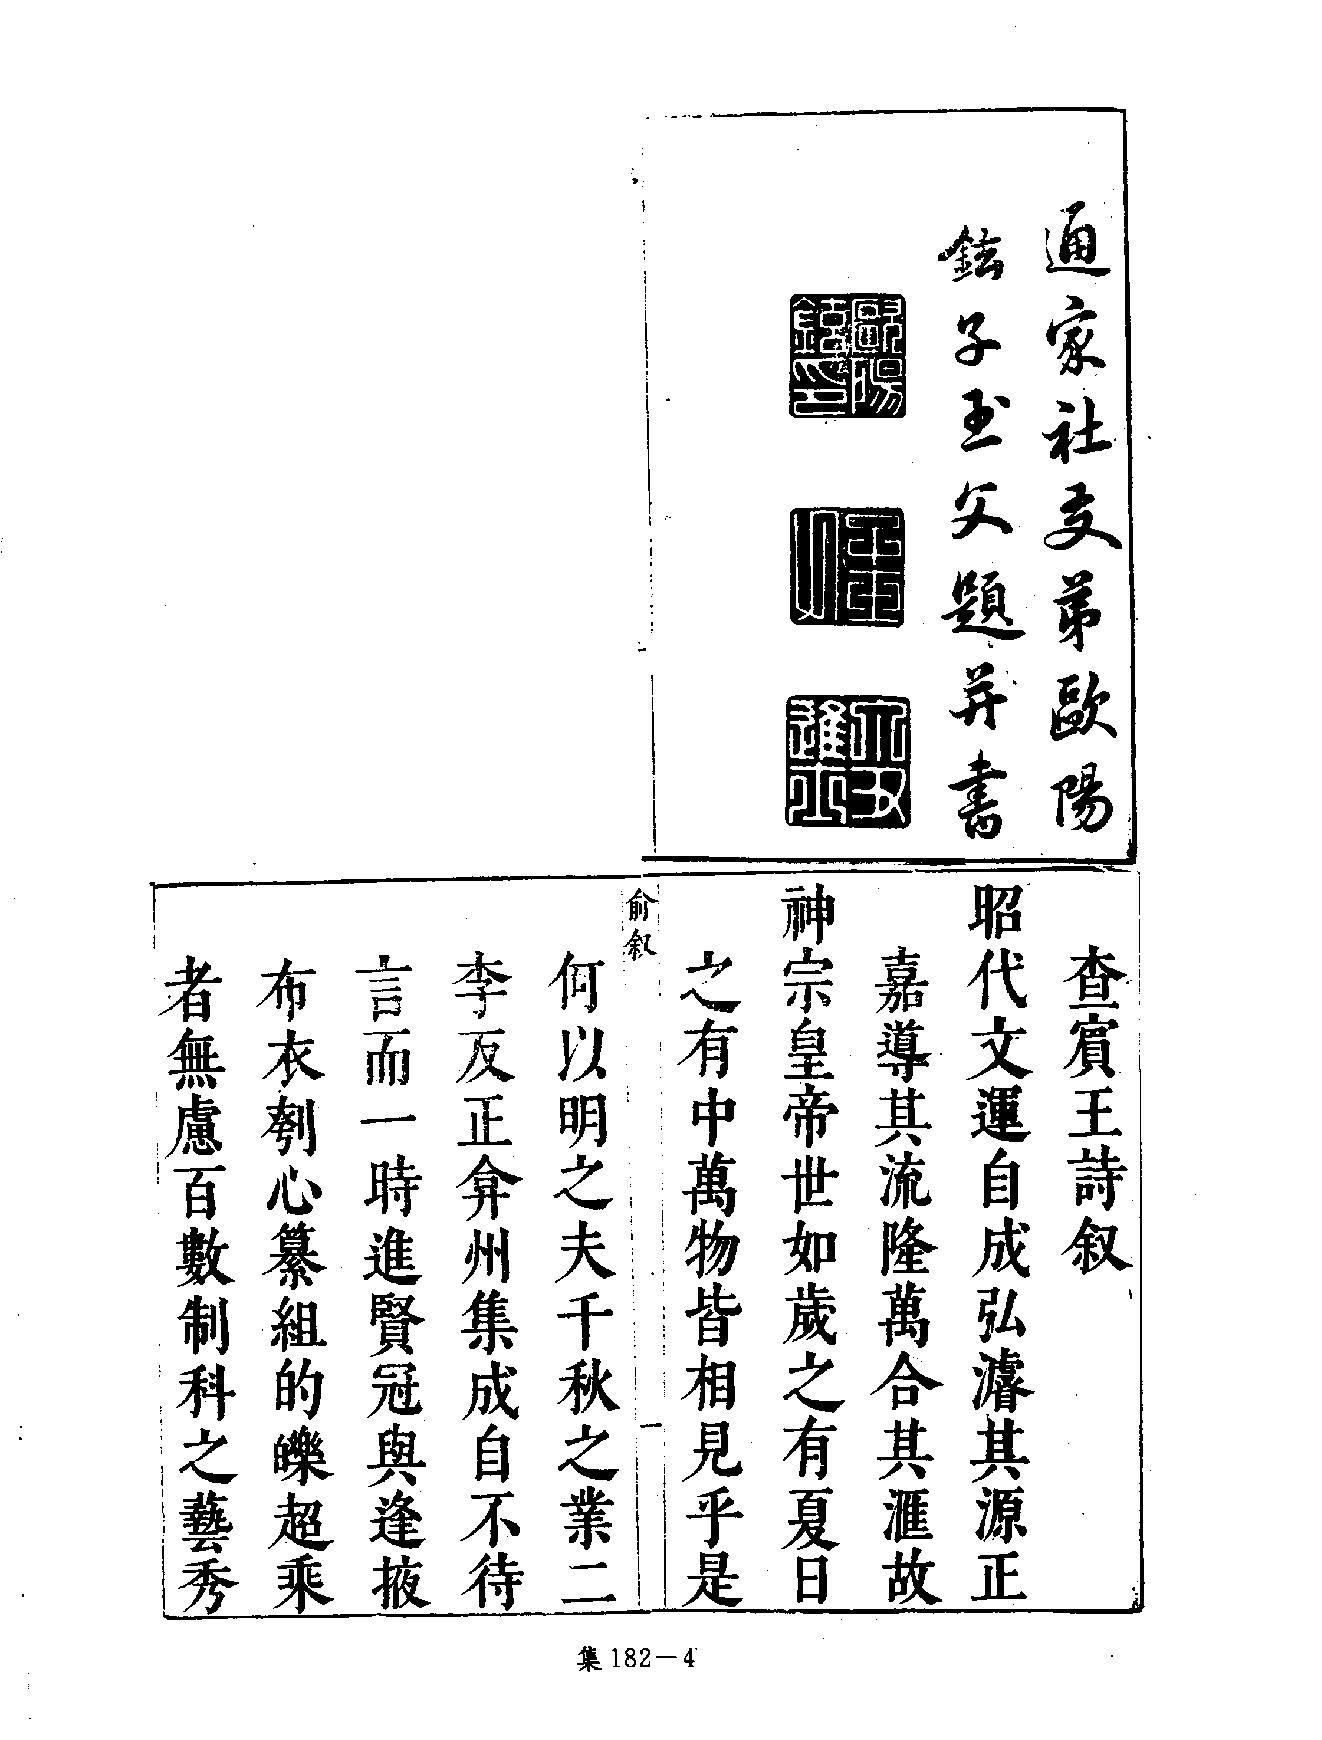 通家社友弟歐陽
鉉子玉父題并書
查賔王詩叙
昭代文運自成弘濬其源正
嘉導其流隆萬合其滙故
神宗皇帝世如歲之有夏日
之有中萬物皆相見乎是
俞叙
一
何以明之夫千秋之業二
李反正弇州集成自不待
言而一時進賢冠與逢掖
布衣刳心纂組的皪超乘
者無慮百數制科之藝秀
集182－4